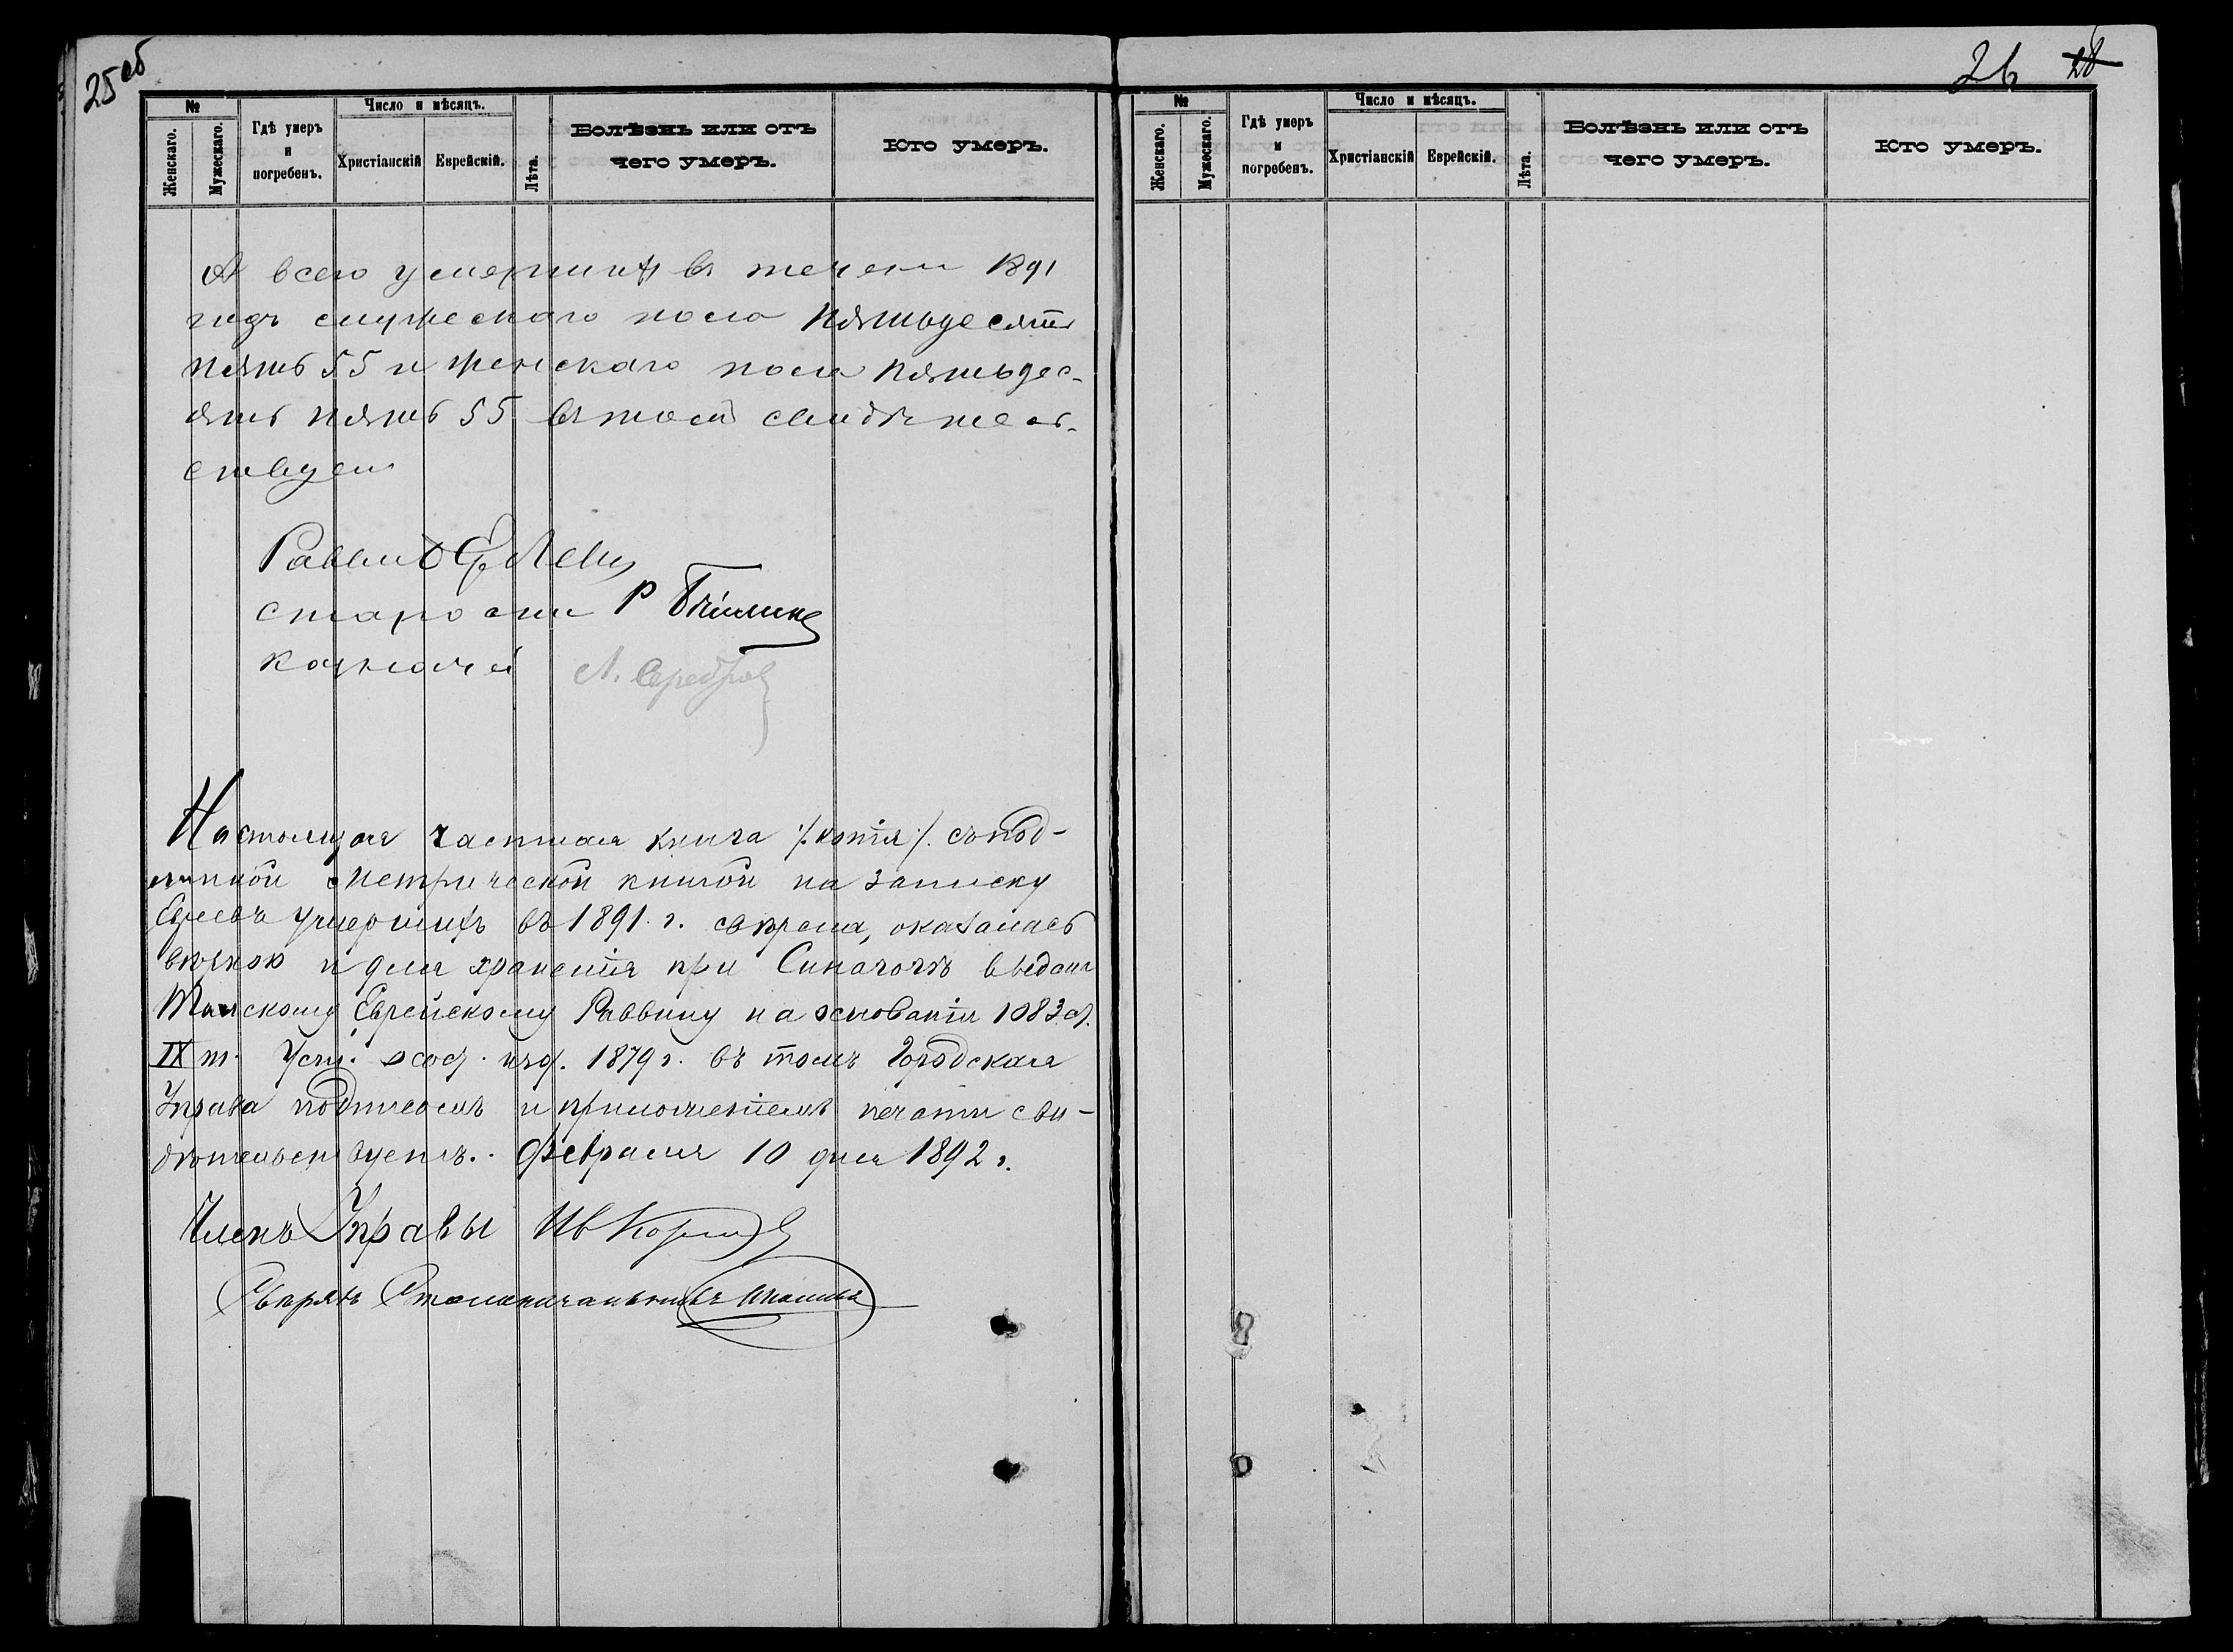 25об
26
№
Женскаго.
Мужескаго.
Гдѣ умеръ
и
погребенъ.
Число и мѣсяцъ.
Христіанскій
Еврейскій.
Лѣта.
Болѣзнь или отъ
чего умеръ.
Кто умеръ.
А всего умершихъ въ течени 1891
года мужескаго пола пятьдесятъ
пять 55 и женскаго пола пятьдес-
ять пять 55 в томъ свидѣтель-
ствуемъ
Раввинъ Леви
старости Р
казначей Л. Серебров
Настоящая частная книга /:копія/: съ под-
линной метрической книгой на записку
Евреевъ умершихъ въ 1891 г. сверена, оказалась
вѣрною и для храненія при Синагогѣ выдана
Еврейскому Раввину на основаніи 1083 ст.
IX т. Уст. изд. 1879 г. въ томъ Городская
Управа подписомъ и приложеніемъ печати сви-
дѣтельствуетъ. Февраля 10 дня 1892 г.
Членъ Управы Ив
Свѣрялъ Столоначальникъ
№
Женскаго.
Мужескаго.
Гдѣ умеръ
и
погребенъ.
Число и мѣсяцъ.
Христіанскій
Еврейскій.
Лѣта.
Болѣзнь или отъ
чего умеръ.
Кто умеръ.